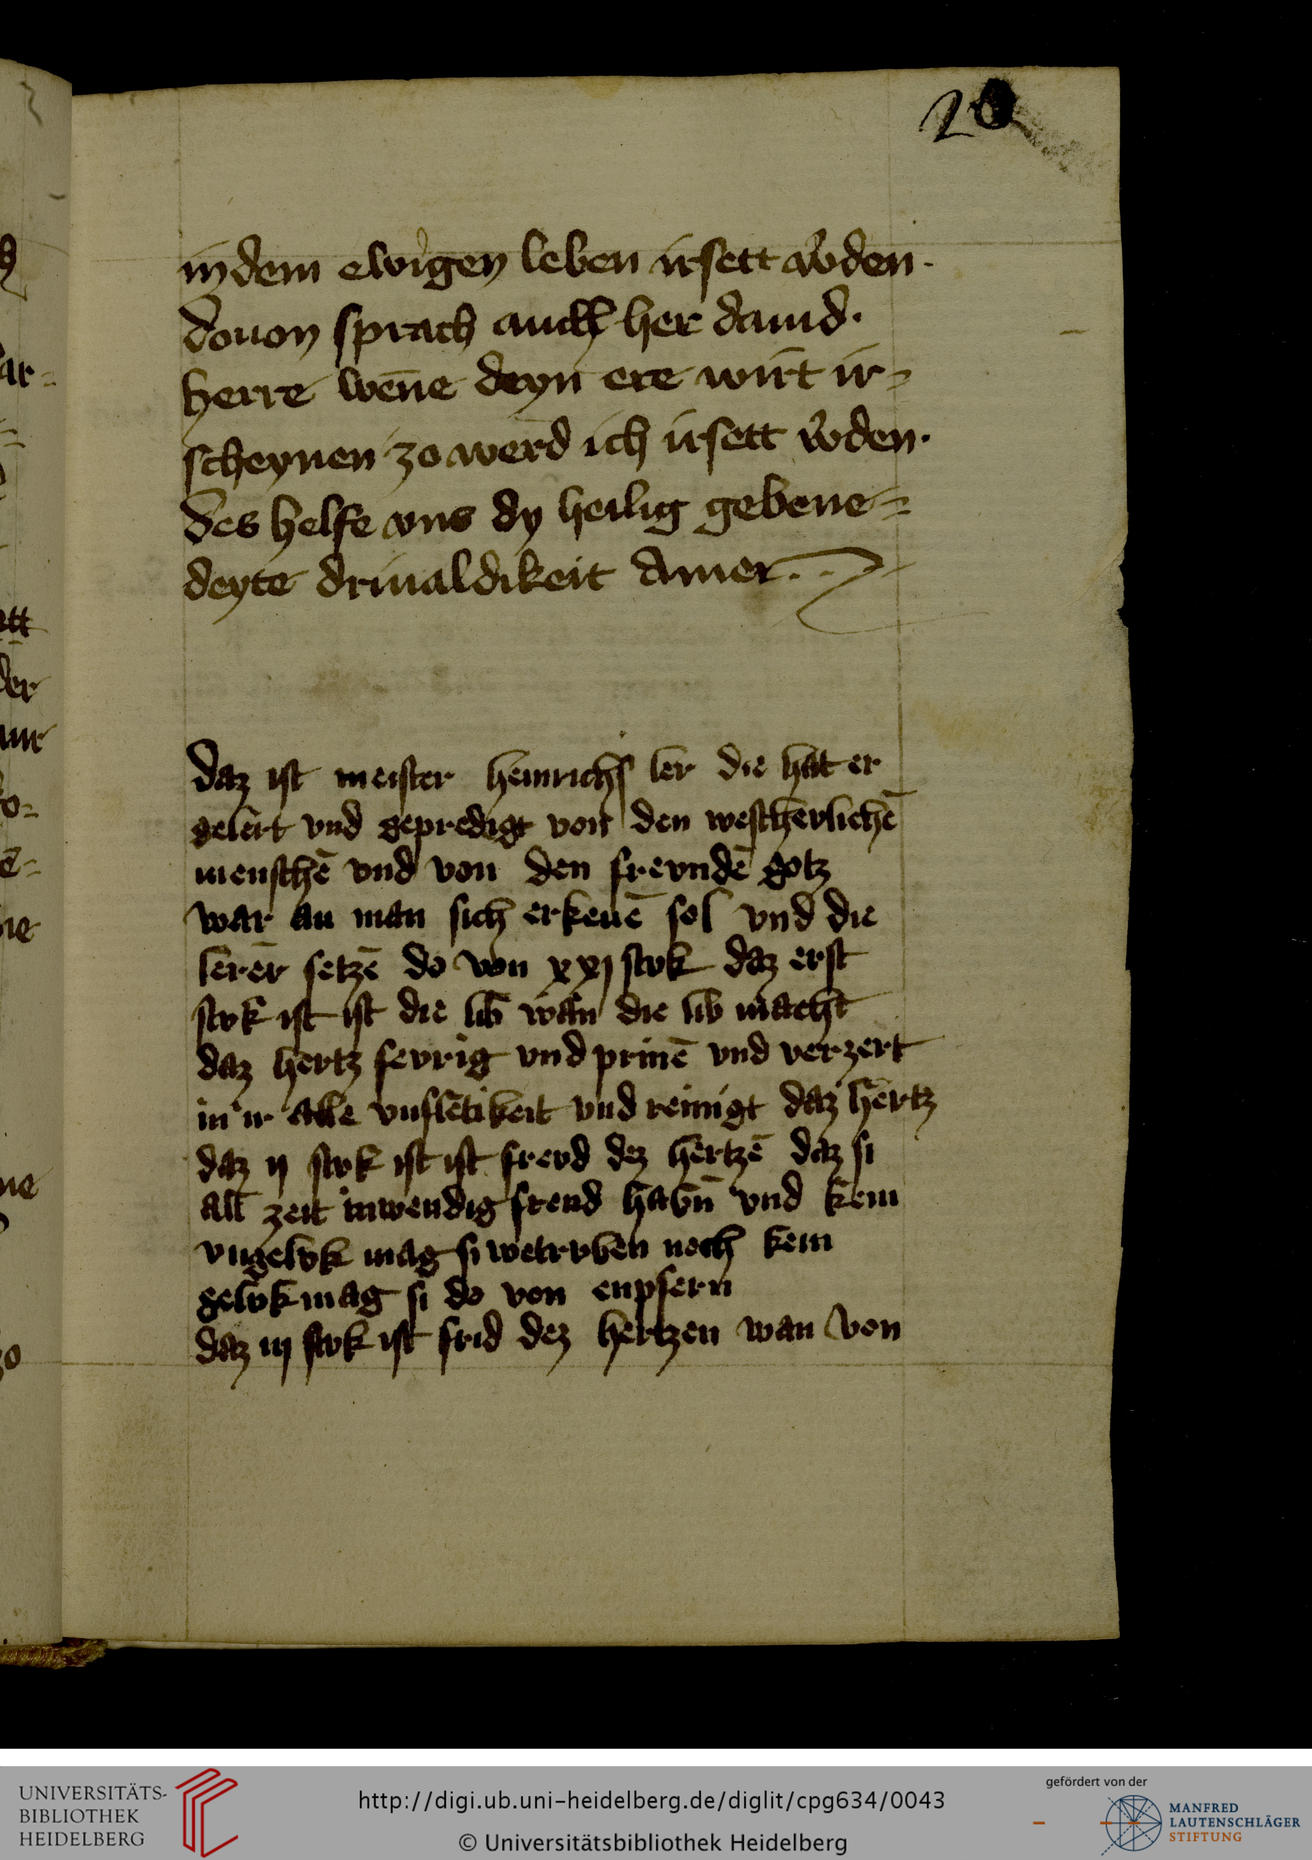 20
in dem ewigen leben irsett w'den·
douon sprach auch her dauid·
herre wēne deyn ere wirt ir=
scheynen zo werd ich irsett w'den·
des helfe vns dy heilig gebene=
deyte driualdikeit Amen··
daz ist meister heinrichs ler die hat er
gelert vnd gepredigt von den westherlichē
menschē vnd von den frevndē gotz
war an man sich erkenē sol vnd die
lerer setzē do von xxj stvk daz erst
stvk ist ist die lib wan die lib macht
daz hertz fevrig vnd prinē vnd verzert
in ir alle vnfletikeit vnd reinigt daz hertz
daz ij stvk ist ist frevd dez hertzē daz si
all zeit inwendig frevd habn vnd kein
vngelvk mag si wetrvben noch kein
gelvk mag si do von enpfern
daz iij stvk ist frid dez hertzen wan von
UNIVERSITÄTS-
BIBLIOTHEK
HEIDELBERG
http://digi.ub.uni-heidelberg.de/diglit/cpg634/0043
© Universitätsbibliothek Heidelberg
gefördert von der
MANFRED
LAUTENSCHLÄGER
STIFTUNG